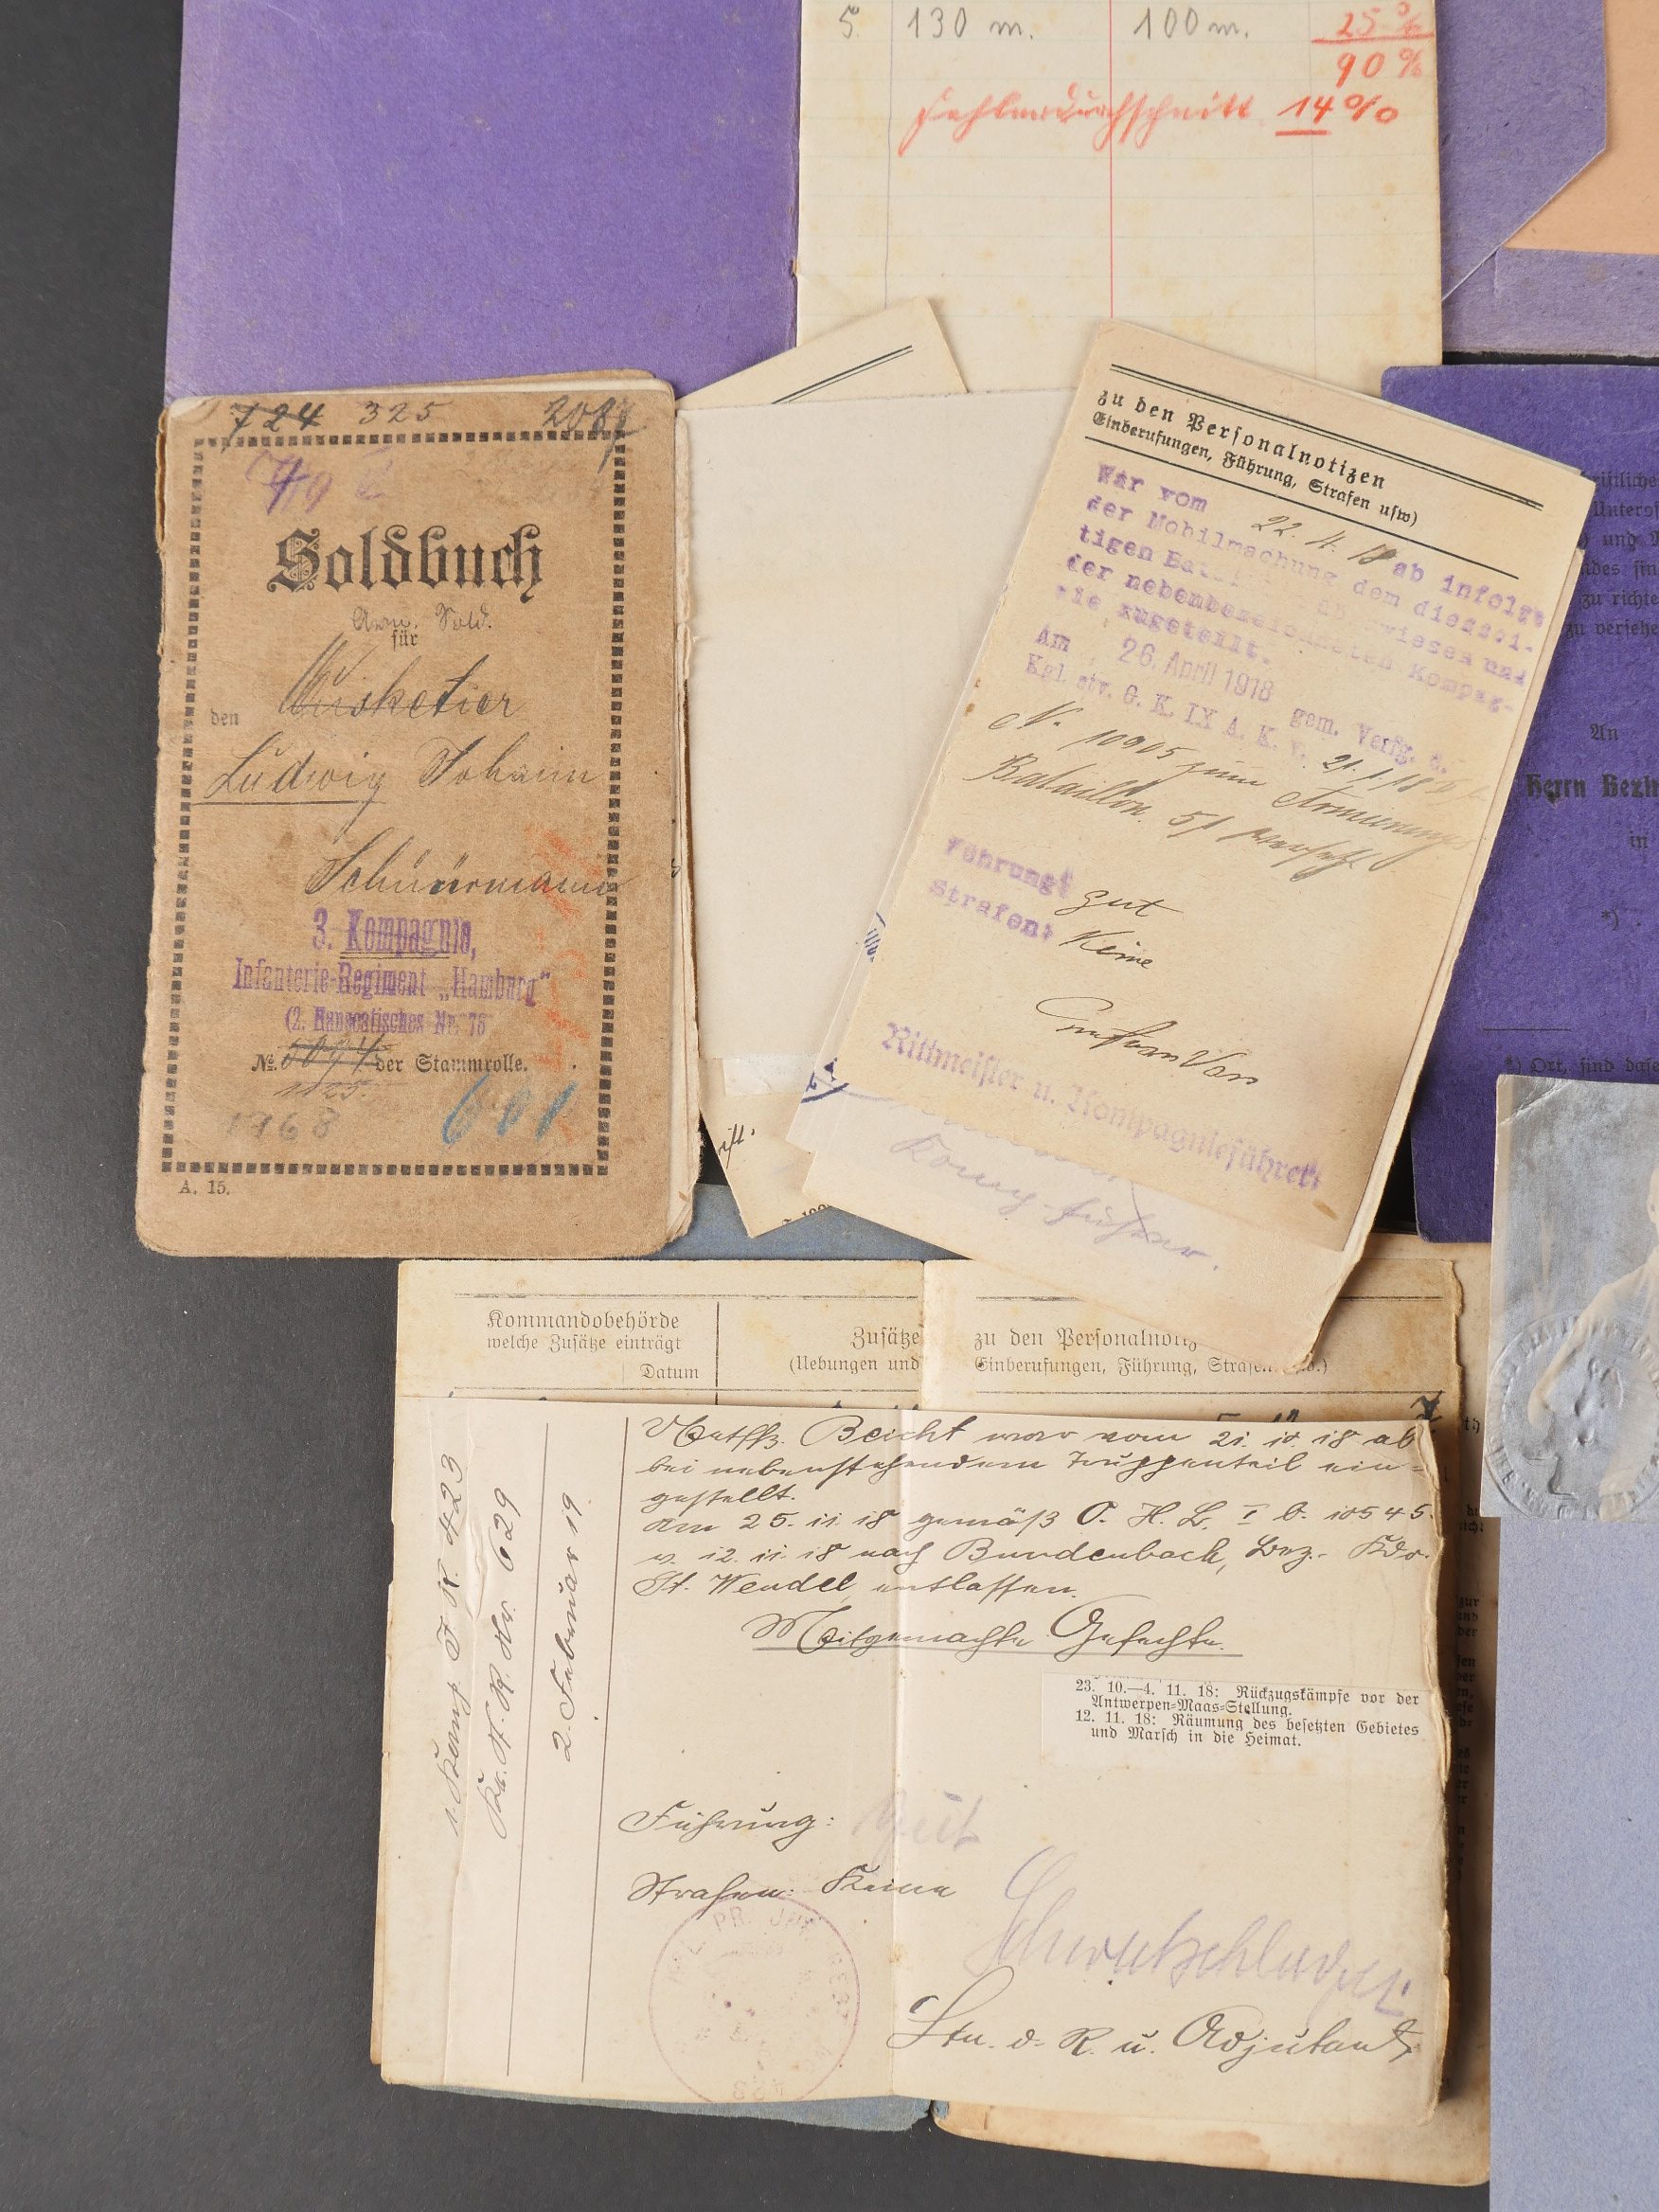 5. 130 m. 100 m. 25 %
90 %
Fehlerdurchschnitt 14 %
724 325 2087
Soldbuch
Arm. Sold.
für
den Musketier
Ludwig Johann
Schürmann
3. Kompagnie,
Infanterie-Regiment „Hamburg“
(2. Hanseatisches Nr. 76
№. der Stammrolle.
1125.
1768 601
A. 15.
zu den Personalnotizen
Einberufungen, Führung, Strafen usw)
War vom 22. 4. 18 ab infolge
der Mobilmachung dem diessei-
tigen überwiesen und
der nebenbezeichneten Kompag-
nie zugeteilt.
Am 26. April 1918 gem. Verfg. d.
Kgl. stv. G. K. IX A. K. v. 21. 1. 18
N. 10905 zum Armierungs
Bataillon. 51 versetzt.
Führung: gut
Strafen: Keine
Rittmeister u. Kompagnieführer
Komp-Führer.
An
Herrn Bezir
in
*)
*) Ort, sind dase
Kommandobehörde
welche Zusätze einträgt
Datum
Zusätze
(Uebungen und
zu den Personalnotiz
Einberufungen, Führung, Strafen
1. Komp I. R. 423
Ba. A. R. Nr. 629
2. Februar 19
Beicht war vom 21. 10. 18 ab
bei nebenstehendem Truppenteil ein-
gestellt.
Am 25. 11. 18 gemäß O. H. L. I b. 10545.
v. 12. 11. 18 nach Bundenbach, Bez.- Kdo.
St. Wendel entlassen.
Mitgemachte Gefechte.
23. 10.—4. 11. 18: Rückzugskämpfe vor der
Antwerpen-Maas-Stellung.
12. 11. 18: Räumung des besetzten Gebietes
und Marsch in die Heimat.
Führung: gut
Strafen: Keine
Ltn. d. R. u. Adjutant,